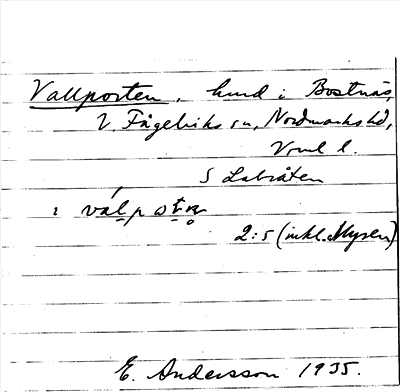 Vallporten, hmd i Bostnäs,
V. Fågelviks sn, Nordmarks hd,
Vrml l.
S Labråten
: válpo
2:5 (inkl. Mysen)
E. Andersson 1935.